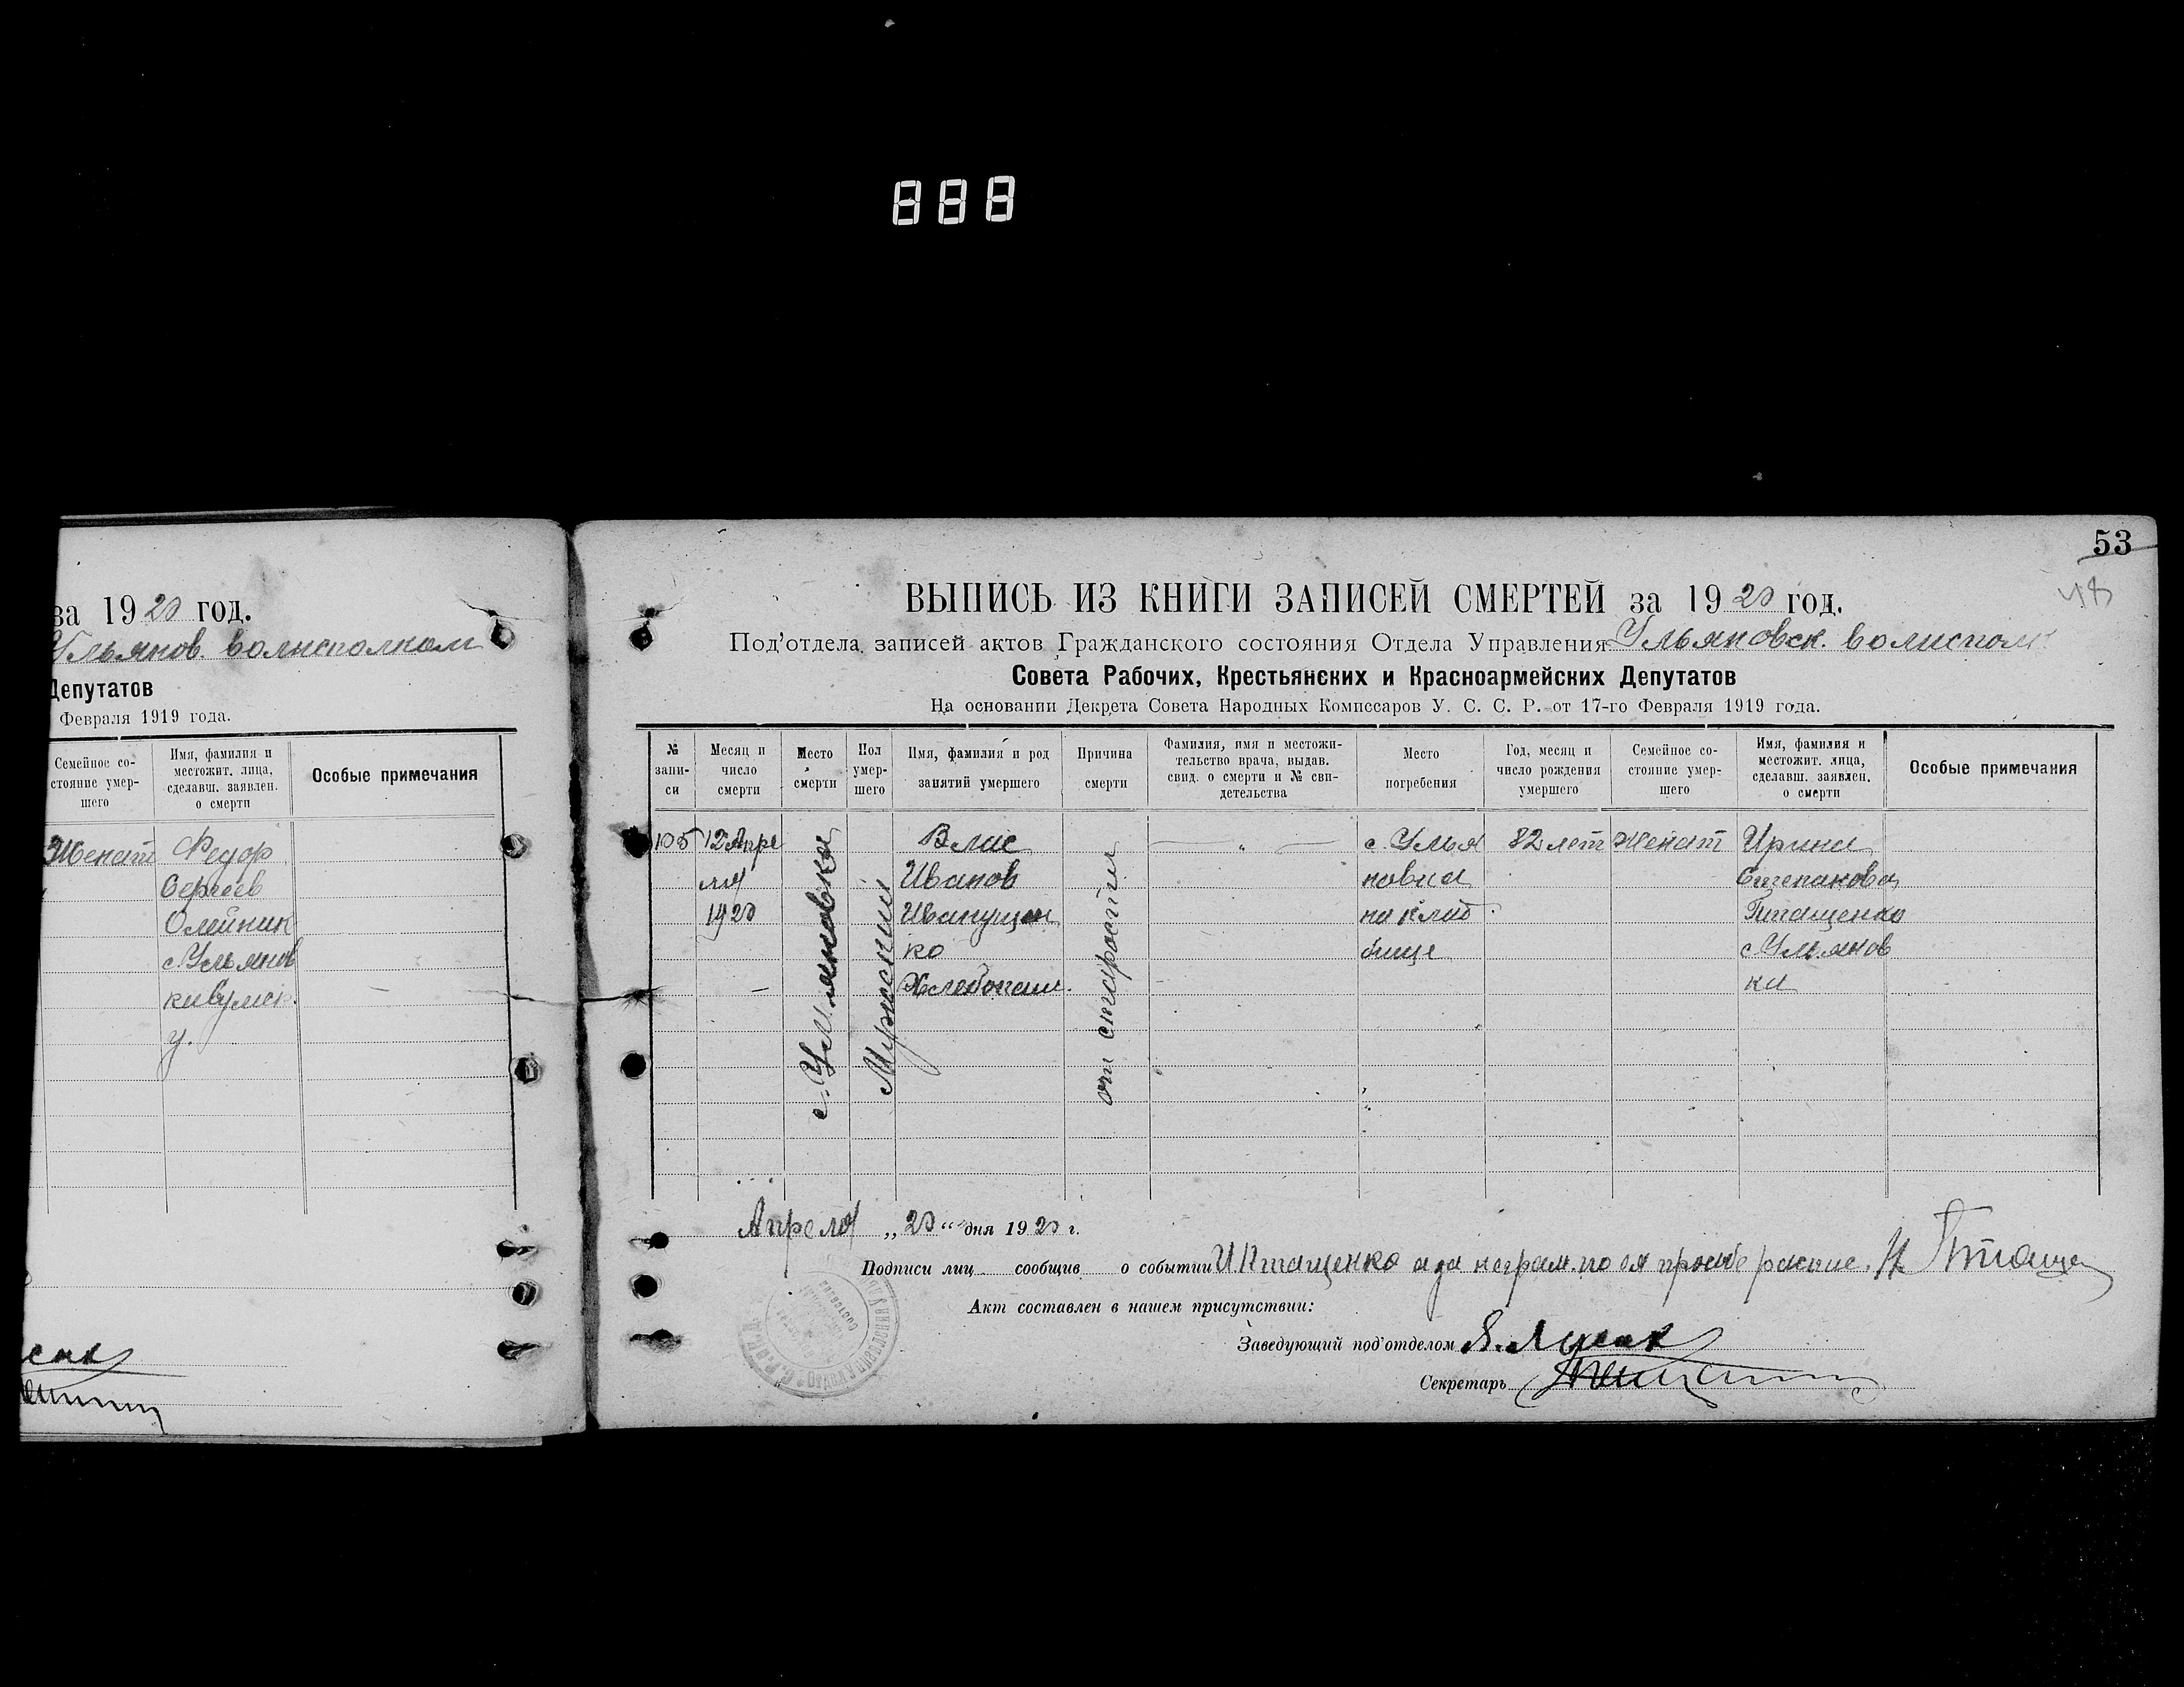 888
за 1920 год.
Ульянов. волисполком
Депутатов
Февраля 1919 года.
Семейное со-
стояние умер-
шего
Имя, фамилия и
местожит. лица,
сделавш. заявлен.
о смерти
Особые примечания
Женат
Федор
Сергеев
Олейник
с. Ульянов
ка
53
48
ВЫПИСЬ ИЗ КНИГИ ЗАПИСЕЙ СМЕРТЕЙ за 1920 год.
Под'отдела записей актов Гражданского состояния Отдела Управления Ульяновск. волисполк
Совета Рабочих, Крестьянских и Красноармейских Депутатов
На основании Декрета Совета Народных Комиссаров У. С. С. Р. от 17-го Февраля 1919 года.
№
запи-
си
Месяц и
число
смерти
Место
смерти
Пол
умер-
шего
Имя, фамилия и род
занятий умершего
Причина
смерти
Фамилия, имя и местожи-
тельство врача, выдав.
свид. о смерти и № сви-
детельства
Место
погребения
Год, месяц и
число рождения
умершего
Семейное со-
стояние умер-
шего
Имя, фамилия и
местожит. лица,
сделавш. заявлен.
о смерти
Особые примечания
105
12 Апре
ля
1920
с. Ульяновка
Мужский
Влас
Иванов
Иванущен
ко
Хлебопаш.
от старости
— " —
с. Улья
новка
на клад
бище
82 лет
женат
Ирина
Степанова
Пташенко
с. Ульянов
ка
Апреля „20“ дня 1920 г.
Подписи лиц сообщив о событии И. Пташенко а за неграм. по ея прозьбе
Акт составлен в нашем присутствии:
Заведующий под'отделом
Секретарь